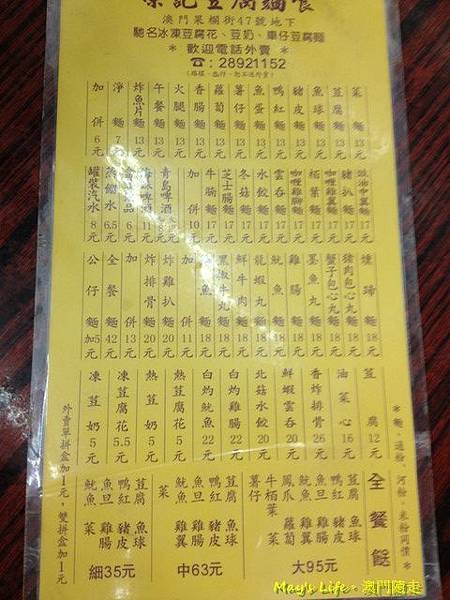 榮記豆腐麵食
澳門菓欄街47號地下
馳名冰凍豆腐花、豆奶、車仔豆腐麵
* 歡迎電話外賣 *
☎:28921152
菜 麵 13元
豆腐 麵 13元
魚球 麵 13元
豬皮 麵 13元
鴨紅 麵 13元
魚蛋 麵 13元
薯仔 麵 13元
蘿蔔 麵 13元
香腸 麵 13元
火腿 麵 13元
午餐 麵 13元
炸魚片 麵 13元
淨 麵 7元
加 併 6元
豉油中翼麵 17元
豬扒 麵 17元
咖喱雞翼麵 17元
柏葉 麵 17元
咖喱雞腳麵 17元
雲吞 麵 17元
水餃 麵 17元
冬菇 麵 17元
芝士腸 麵 17元
牛腩 麵 17元
加 併 10元
青島啤酒
罐裝汽水 8元
燻蹄 麵 18元
豬肉包心丸 麵 18元
蟹子包心丸 麵 18元
墨魚丸 麵 18元
雞腸 麵 18元
魷魚 麵 18元
龍蝦丸 麵 18元
鮮牛肉 麵 18元
黑椒牛丸 麵 18元
加 併 11元
炸雞扒 麵 20元
炸排骨 麵 20元
加 併 13元
全餐 麵 42元
公仔 麵 加5元
豆腐 12元
油菜心 16元
香炸排骨 26元
鮮蝦雲吞 20元
北菇水餃 20元
白灼雞腸 22元
白灼魷魚 22元
熱荳腐花 5元
熱荳奶 5元
凍荳腐花 5.5元
凍荳奶 5元
*麵、通粉、河粉、米粉同價*
外賣單拼盒加1元,雙拼盒加1元
全餐餸
豆腐 魚球
鴨紅 豬皮
魚旦 雞腸
魷魚 雞翼
鳳爪 蘿蔔
牛柏葉 菜
薯仔
大95元
豆腐 魚球
鴨紅 豬皮
魚旦 雞腸
魷魚 雞翼
菜
中63元
豆腐 魚球
鴨紅 豬皮
魚旦 雞腸
魷魚 菜
細35元
May's Life。澳門隨走